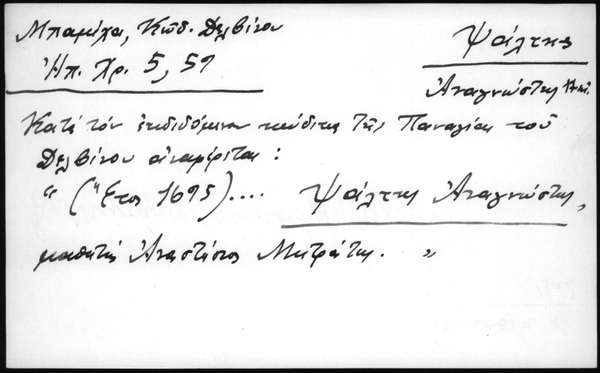 Μπαμίχα, Κῶδ. Δελβίνου
Ἠπ. Χρ. 5, 59
Ψάλτης
Ἀναγνώστης
Κατὰ τόν ἐκδιδόμενον κώδικα τῆς Παναγίας τοῦ
Δελβίνου ἀναφέρεται :
" (Ἔτος 1695).... Ψάλτης Ἀναγνώστης,
μαθητής Ἀναστάσιος Μητράτης. "